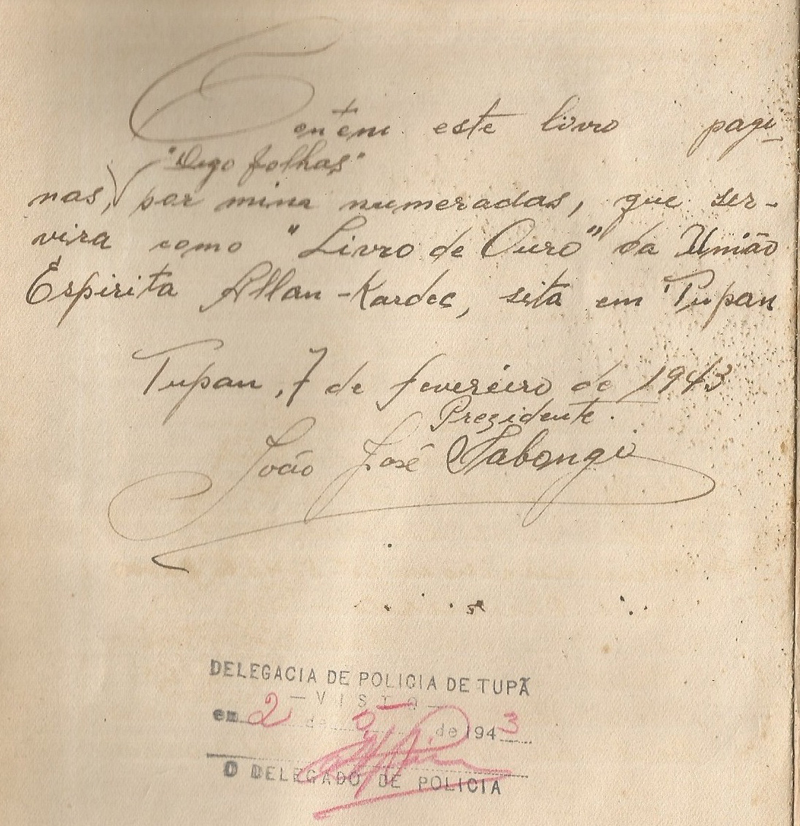 Contêm este livro pagi-
"Digo folhas"
nas, por mim numeradas, que ser-
vira como "Livro de Ouro" da União
Espirita Allan-Kardec, sita em Tupan
Tupan, 7 de fevereiro de 1943
Prezidente.
João José
DELEGACIA DE POLICIA DE TUPÃ
— VISTO —
em 2 de de 1943
O DELEGADO DE POLICIA